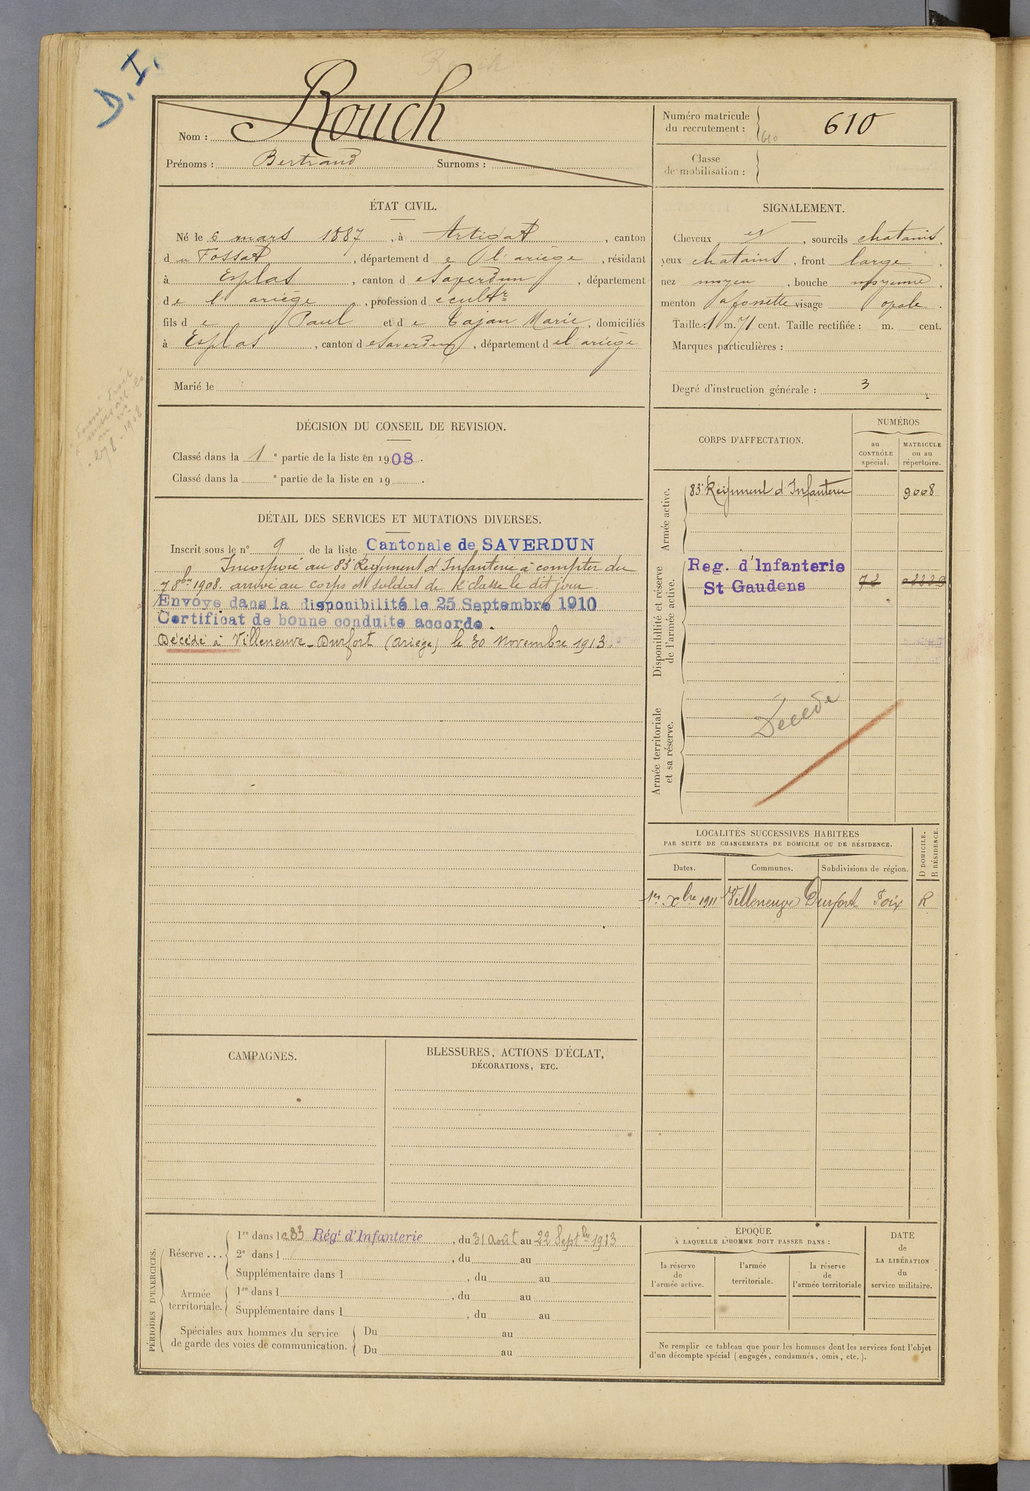 D.I.
Nom : Rouch
Prénoms : Bertrand Surnoms :
Numéro matricule du recrutement : 610
Classe de mobilisation :
ÉTAT CIVIL.
Né le 6 mars 1887, à Artigat, canton
du Fossat, département de l'ariège, résidant
à Esplas, canton de Saverdun, département
de l'ariège, profession de cultr
fils de Paul et de Cajan Marie, domiciliés
à Esplas, canton de Saverdun, département de l'ariège
Marié le
SIGNALEMENT.
Cheveux et, sourcils chatains,
yeux chatains, front large,
nez moyen, bouche moyenne,
menton à fossette visage ovale.
Taille : 1 m. 71 cent. Taille rectifiée : m. cent.
Marques particulières :
Degré d'instruction générale : 3
DÉCISION DU CONSEIL DE REVISION.
Classé dans la 1e partie de la liste en 1908.
Classé dans la e partie de la liste en 19 .
DÉTAIL DES SERVICES ET MUTATIONS DIVERSES.
Inscrit sous le n° 9 de la liste Cantonale de SAVERDUN
Incorporé au 83e Regiment d'Infanterie à compter du
7 8bre 1908. arrivé au corps et soldat de 2e classe le dit jour.
Envoyé dans la disponibilité le 25 Septembre 1910
Certificat de bonne conduite accordé.
Décédé à Villeneuve-Durfort (Ariège) le 30 Novembre 1913.
CORPS D'AFFECTATION.
NUMÉROS
au CONTRÔLE spécial.
MATRICULE ou au répertoire.
Armée active.
83e Regiment d'Infanterie 9008
Disponibilité et réserve de l'armée active.
Reg. d'Infanterie
St Gaudens
Armée territoriale et sa réserve.
Décédé
LOCALITÉS SUCCESSIVES HABITÉES
PAR SUITE DE CHANGEMENTS DE DOMICILE OU DE RÉSIDENCE.
Dates. Communes. Subdivisions de région. D DOMICILE. R RÉSIDENCE.
1er Xbre 1911 Villeneuve Durfort Foix R
CAMPAGNES.
BLESSURES, ACTIONS D'ÉCLAT,
DÉCORATIONS, ETC.
PÉRIODES D'EXERCICES.
Réserve ...
1re dans le 83 Régt d'Infanterie, du 31 Août au 22 Septbre 1913
2e dans l , du au
Supplémentaire dans l , du au
Armée territoriale.
1re dans l , du au
Supplémentaire dans l , du au
Spéciales aux hommes du service
de garde des voies de communication.
Du au
Du au
ÉPOQUE
À LAQUELLE L'HOMME DOIT PASSER DANS :
la réserve de l'armée active.
l'armée territoriale.
la réserve de l'armée territoriale
DATE de LA LIBÉRATION du service militaire.
Ne remplir ce tableau que pour les hommes dont les services font l'objet
d'un décompte spécial (engagés, condamnés, omis, etc.).